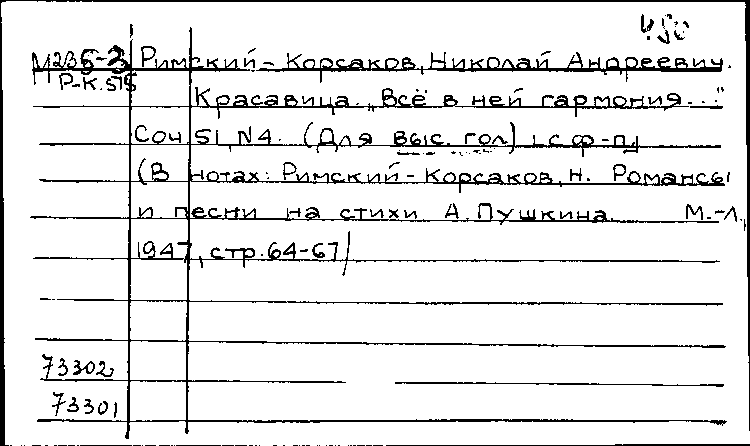 450
М235-3 Римский-Корсаков, Николай Андреевич.
Р-К.515
Красавица. „Всё в ней гармония..."
Соч 51, N4. (Для выс. гол) с ф-п
(В нотах: Римский-Корсаков, Н. Романсы
и песни на стихи А. Пушкина. М.-Л.,
1947, стр. 64-67)
73302
73301